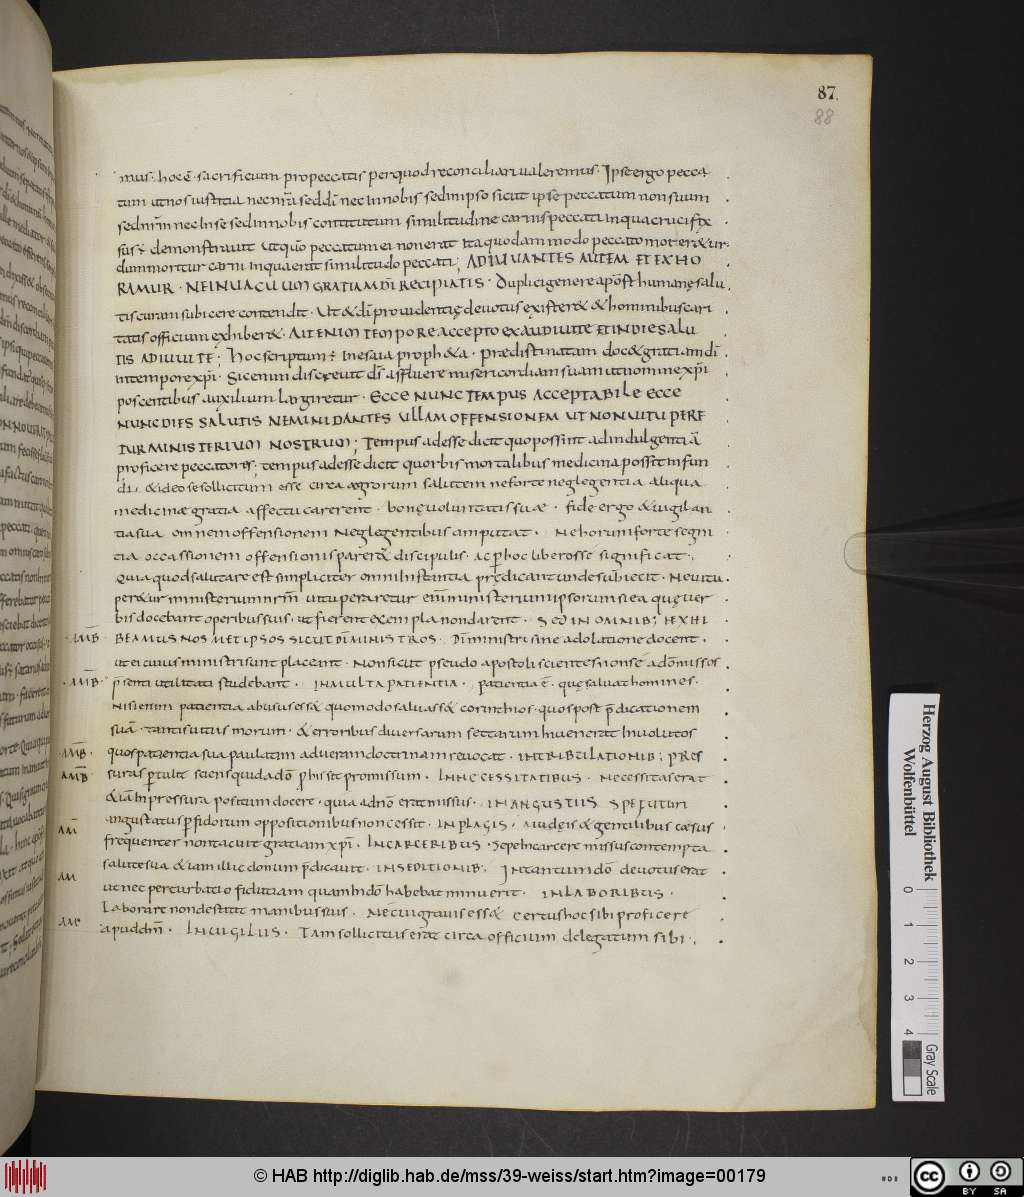 87.
88
mus · hoc ē · sacrificium pro peccatis per quod reconciliari valeremus · Ipse ergo pecca
tum ut nos iustitia nec nr̄a sed dī nec in nobis sed in ipso sicut ipse peccatum non suum
sed nr̄m nec in se sed in nobis constitutum similitudine carnis peccati in qua crucifix
sus ÷ demonstravit ut quō peccatum ei non erat ita quodam modo peccato moreret ur
dum moritur carni in qua erat similitudo peccati ; ADIUVANTES AUTEM ET EXHO
RAMUR · NE IN VACUUM GRATIAM DĪ RECIPIATIS · Duplici genere apōst humanę salu
tis curam subicere contendit · Ut & dī providentię devotus existeret & hominibus cari
tatis officium exhiberet · AIT ENIM TEMPORE ACCEPTO EXAUDIVI TE ET IN DIE SALU
TIS ADIUVI TE ; Hoc scriptum ÷ in esaia propheta · Prædistinatam doc& gratiam dī
in tempore xp̄i · Sic enim discrevit dꝫ affluere misericordiam suam ut in nomine xp̄i
poscentibus auxilium largiretur · ECCE NUNC TEMPUS ACCEPTABILE ECCE
NUNC DIES SALUTIS NEMINI DANTES ULLAM OFFENSIONEM UT NON VITUPERE
TUR MINISTERIUM NOSTRUM ; Tempus adesse dicit quo possint ad indulgentiā
proficere peccatoris ; tempus adesse dicit quo orbis mortalibus medicina possit infun
di · & ideo se sollicitum esse circa ægrorum salutem ne forte neglegentia aliqua
medicinæ gratia affectu carerent · bonę voluntatis suæ · fide ergo & vigilan
tia sua omnem offensionem neglegentibus amputat · Ne horum forte segni
tia occassionem offensionis pareret discipulis · ac p hoc liber osse significat ·
Quia quod salutare est simpliciter omni instantia prędicant unde subiecit · Ne vitu
peretur ministerium nr̄m vituperaretur eni͞m ministerium ipsorum si ea quę ver
bis docebant operibus suis · ut fierent exempla non darent · SED IN OMNIB; EXHI
AMB̄ BEAMUS NOS METIPSOS SICUT DĪ MINISTROS · Dī ministri sine adolatione docent ·
ut ei cuius ministri sunt placeant · Non sicut pseudo apostoli scientes non se a dō missos
AMB̄ p̄senti utilitati studebant · IN MULTA PATIENTIA · patientia ē · quę salvat homines ·
Nisi enim patientia abusus esset quomodo salvasset corinthios · quos post p̄dicationem
suā · tanti sui tui morum · & erroribus diversarum sectarum invenerat involutos
AMB̄ quos patientia sua paulatim ad veram doctrinam revocat · IN TRIBULATIONIB; PRES
AMB̄ suras ptulit sciens quid a dō p his sit promissum · IN NECESSITATIBUS · Necessitas erat
& iā in pressura positum docere · quia ad nō erat missus · IN ANGUSTIIS
AM angustatus p fidorum oppositionibus non cessit · IN PLAGIS · Iudeis & gentilibus cæsus
frequenter non tacuit gratiam xp̄i · IN CARCERIBUS · Sepe in carcere missus contempta
salute sua etiam illic donum p̄dicavit · IN SEDITIONIB; In tantum dō devotus erat
AM ut nec perturbatio fiduciam quam in dō habebat minuerit · IN LABORIBUS ·
Laborare non destitit manibus suis · ne cui gravis esset certus hoc sibi proficere
AM apud dm̄ · IN VIGILIIS · Tam sollicitus erat circa officium delegatum sibi ·
Herzog August Bibliothek
Wolfenbüttel
0
1
2
3
4
Gray Scale
© HAB http://diglib.hab.de/mss/39-weiss/start.htm?image=00179
cc
BY SA